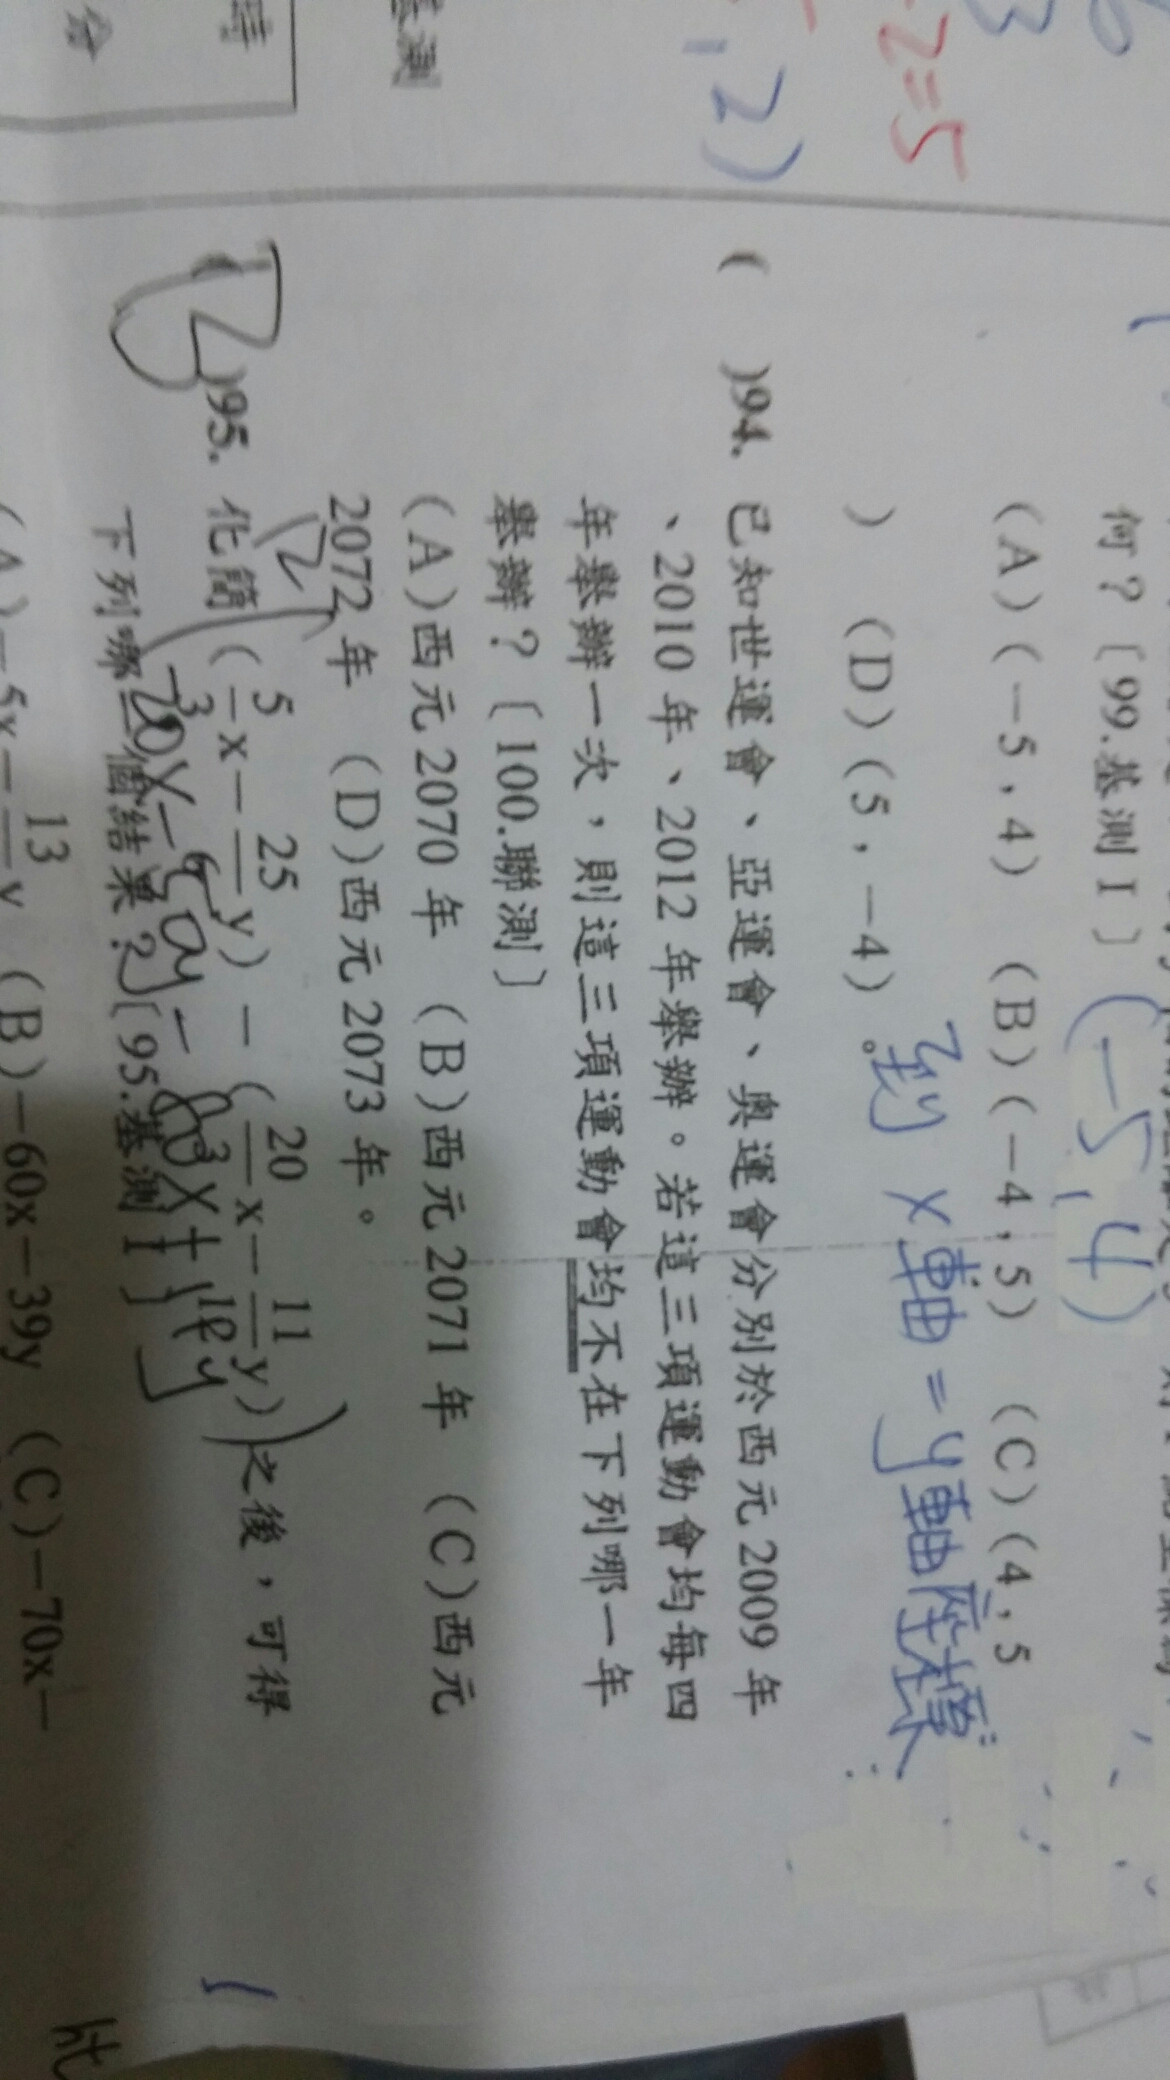 時
分
測
2)
-2=5
3
6
何？〔99.基測I〕
(-5,4)
(A)(-5,4) (B)(-4,5) (C)(4,5
) (D)(5,-4)。
到 x軸=y軸座標
( )94. 已知世運會、亞運會、奧運會分別於西元2009年
、2010年、2012年舉辦。若這三項運動會均每四
年舉辦一次，則這三項運動會均不在下列哪一年
舉辦？〔100.聯測〕
(A)西元2070年 (B)西元2071年 (C)西元
2072年 (D)西元2073年。
12
)95. 化簡(5/3x-25/6y)-(20/3x-11/4y)之後，可得
下列哪一個結果？〔95.基測I〕
(A)-5x-13/ y (B)-60x-39y (C)-70x-